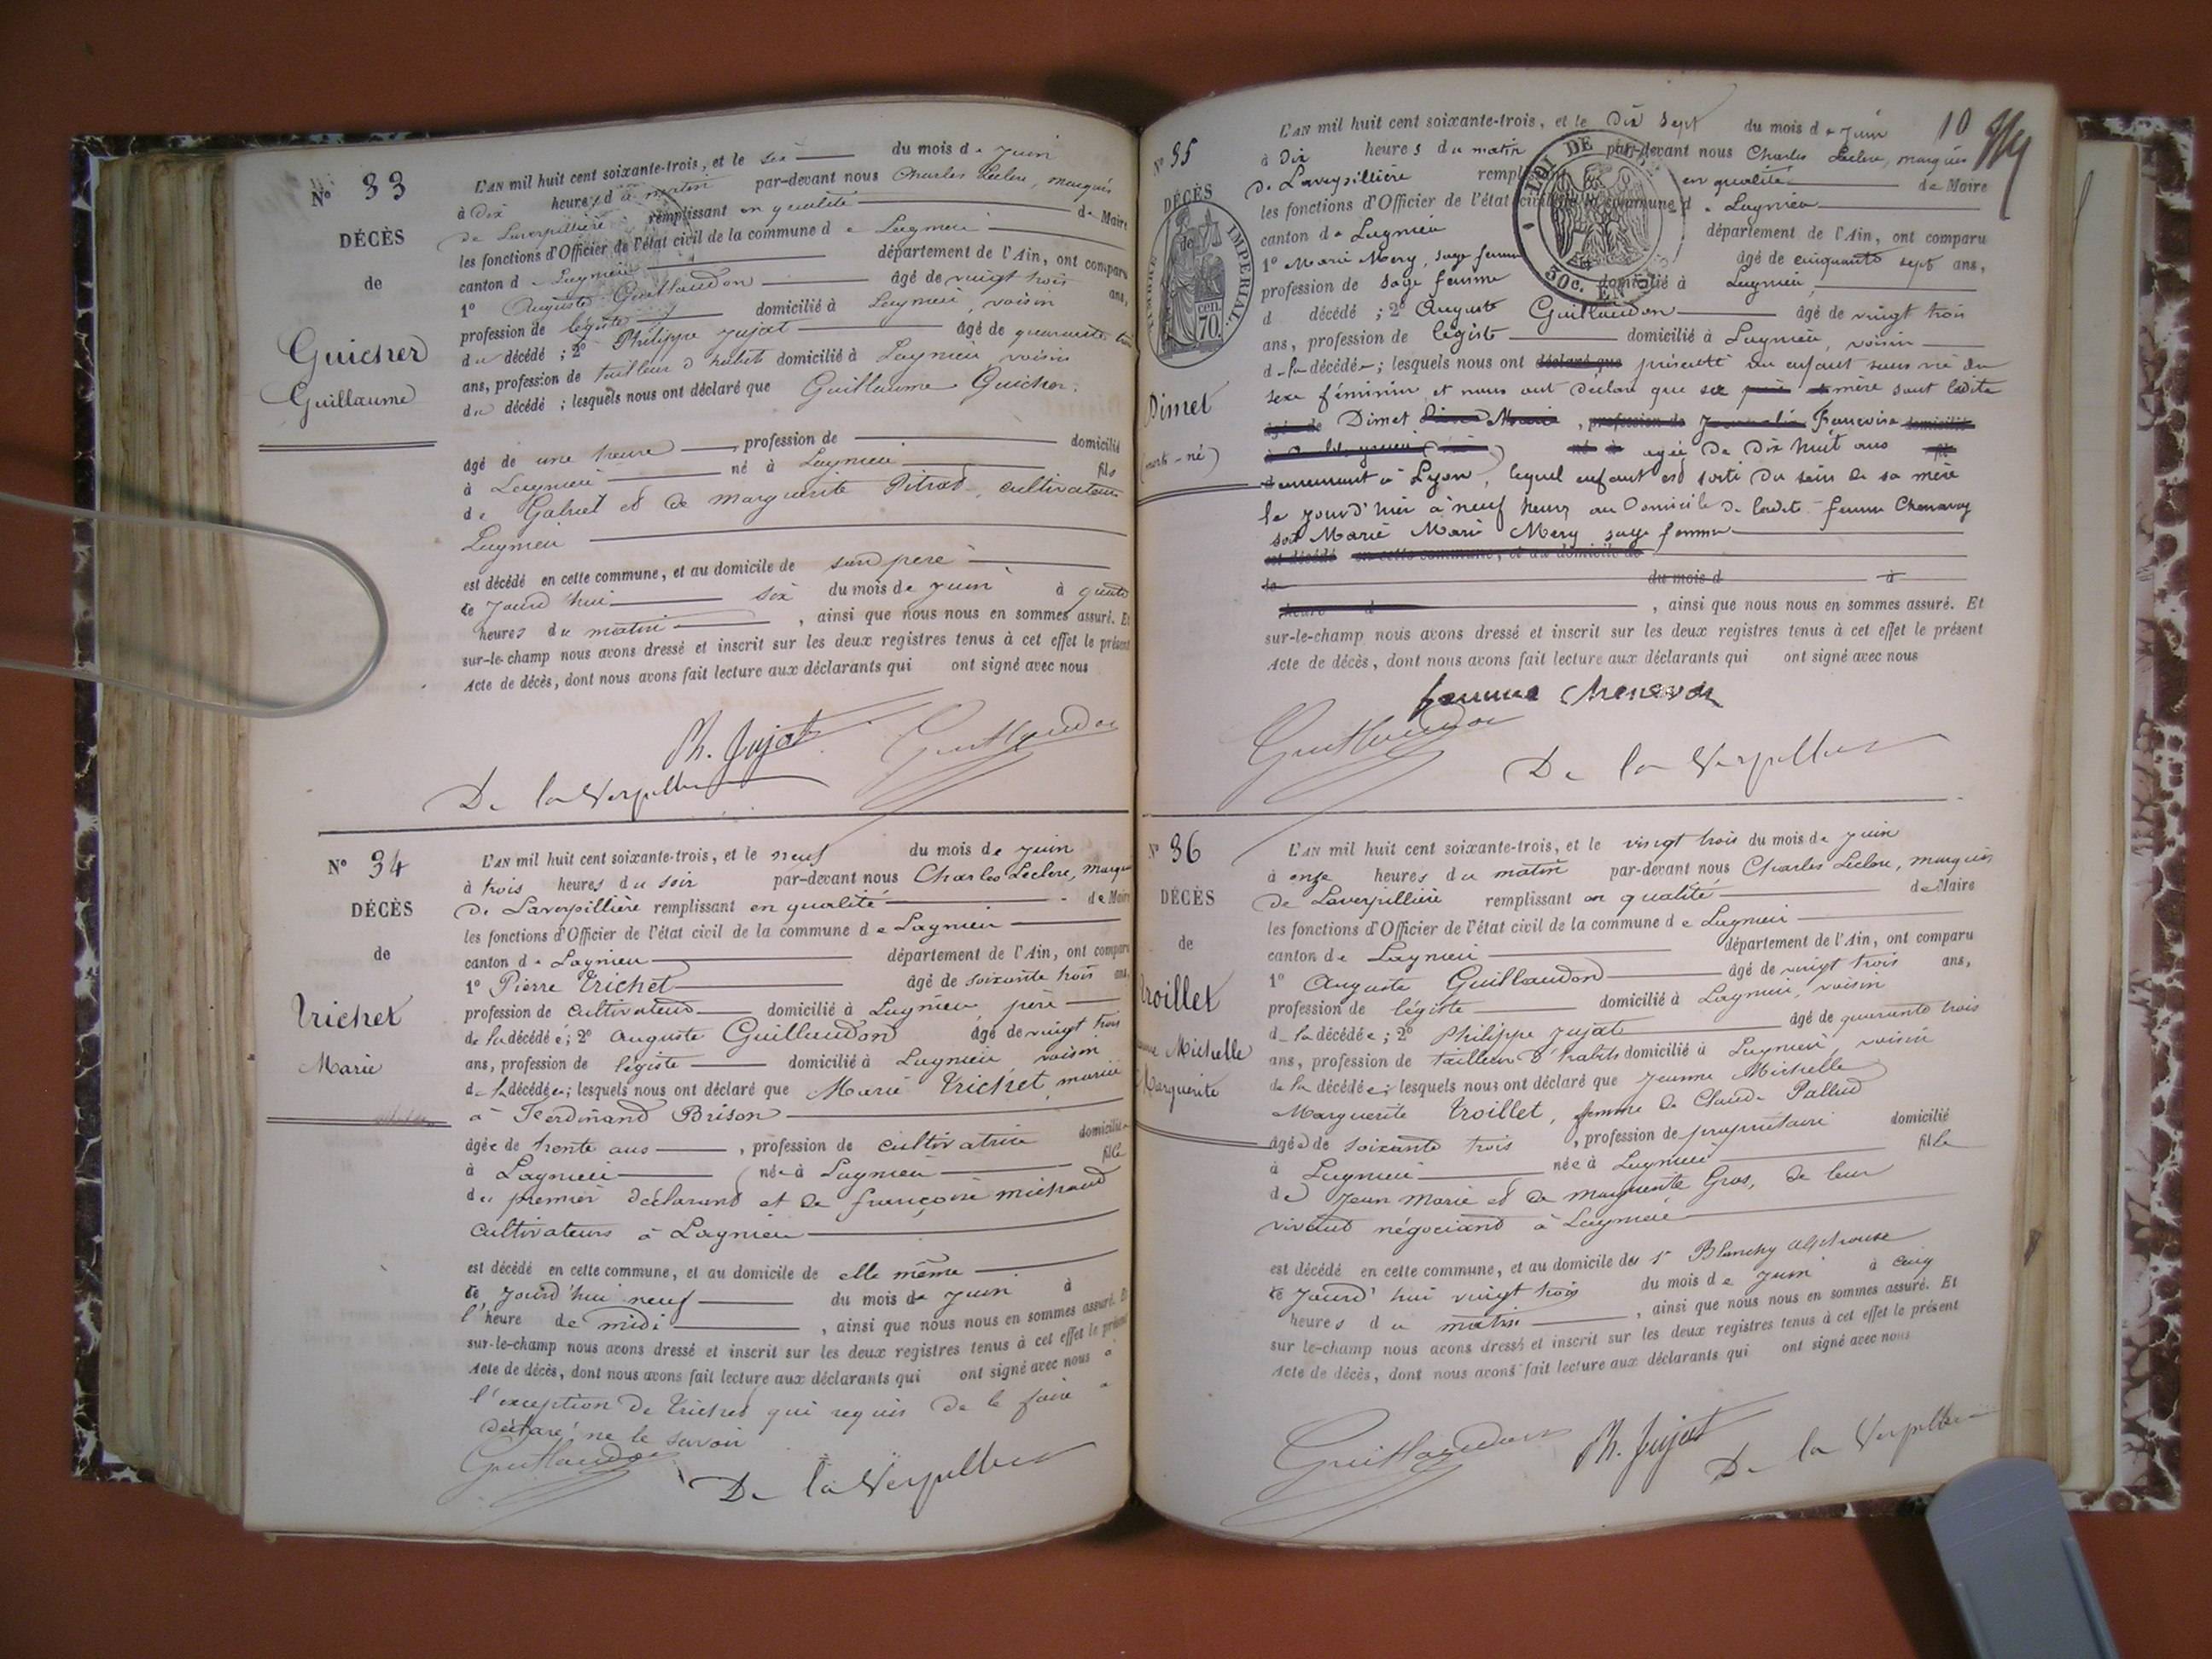 N° 33
DÉCÈS
de
Guicher
Guillaume
L'AN mil huit cent soixante-trois, et le six du mois de Juin
à Dix heures du matin par-devant nous Charles Leclerc, marquis
de Laverpillière remplissant en qualité de Maire
les fonctions d'Officier de l'état civil de la commune de Lagnieu
canton de Lagnieu département de l'Ain, ont comparu
1° Auguste Guillaudon âgé de vingt trois ans,
profession de légiste domicilié à Lagnieu, voisin
du décédé ; 2° Philippe Jujat âgé de quarante trois
ans, profession de tailleur d'habits domicilié à Lagnieu, voisin
du décédé ; lesquels nous ont déclaré que Guillaume Guicher,
âgé de une heure, profession de domicilié
à Lagnieu né à Lagnieu fils
de Gabriel et de Marguerite Pitrat, cultivateurs
Lagnieu
est décédé en cette commune, et au domicile de son père
le Jourd'hui six du mois de Juin à quatre
heures du matin, ainsi que nous nous en sommes assuré. Et
sur-le-champ nous avons dressé et inscrit sur les deux registres tenus à cet effet le présent
Acte de décès, dont nous avons fait lecture aux déclarants qui ont signé avec nous
Ph. Jujat Guillaudon
De la Verpilliere
N° 34
DÉCÈS
de
Trichet
Marie
L'AN mil huit cent soixante-trois, et le neuf du mois de Juin
à trois heures du soir par-devant nous Charles Leclerc, marquis
de Laverpillière remplissant en qualité de Maire
les fonctions d'Officier de l'état civil de la commune de Lagnieu
canton de Lagnieu département de l'Ain, ont comparu
1° Pierre Trichet âgé de soixante trois ans,
profession de cultivateur domicilié à Lagnieu père
de la décédée ; 2° Auguste Guillaudon âgé de vingt trois
ans, profession de légiste domicilié à Lagnieu voisin
de la décédée ; lesquels nous ont déclaré que Marie Trichet, mariée
à Ferdinand Brison
âgée de trente ans, profession de cultivatrice domiciliée
à Lagnieu née à Lagnieu fille
du premier déclarant et de françoise michaud
cultivateurs à Lagnieu
est décédé en cette commune, et au domicile de elle même
le jourd'hui neuf du mois de Juin à
l'heure de midi, ainsi que nous nous en sommes assuré. Et
sur-le-champ nous avons dressé et inscrit sur les deux registres tenus à cet effet le présent
Acte de décès, dont nous avons fait lecture aux déclarants qui ont signé avec nous à
l'exception de Trichet qui requis de le faire a
déclaré ne le savoir
Guillaudon De la Verpilliere
10
N° 35
DÉCÈS
de
TIMBRE IMPERIAL
70 cen
Dimet
(mort-né)
L'AN mil huit cent soixante-trois, et le Dix sept du mois de Juin
à Dix heures du matin par-devant nous Charles Leclerc, marquis
de Laverpillière remplissant en qualité de Maire
les fonctions d'Officier de l'état civil de la commune de Lagnieu
canton de Lagnieu département de l'Ain, ont comparu
1° Marie Mery, sage femme âgé de cinquante sept ans,
profession de sage femme domicilié à Lagnieu,
d décédé ; 2° Auguste Guillaudon âgé de vingt trois
ans, profession de légiste domicilié à Lagnieu, voisin
de la décédée ; lesquels nous ont déclaré que présenté un enfant sans vie du
sexe féminin et nous ont déclaré que sa mère sont ladite
Dimet Françoise
agée de Dix huit ans
demeurant à Lyon, lequel enfant est sorti du sein de sa mère
le jourd'hier à neuf heures au Domicile de ladite femme Chenavoy
soit Marie Marie Mery sage femme
est décédé en cette commune, et au domicile de
le du mois d à
heure d, ainsi que nous nous en sommes assuré. Et
sur-le-champ nous avons dressé et inscrit sur les deux registres tenus à cet effet le présent
Acte de décès, dont nous avons fait lecture aux déclarants qui ont signé avec nous
femme
Guillaudon
De la Verpilliere
N° 36
DÉCÈS
de
Troillet
Michelle
Marguerite
L'AN mil huit cent soixante-trois, et le vingt trois du mois de Juin
à onze heures du matin par-devant nous Charles Leclerc, marquis
de Laverpillière remplissant en qualité de Maire
les fonctions d'Officier de l'état civil de la commune de Lagnieu
canton de Lagnieu département de l'Ain, ont comparu
1° Auguste Guillaudon âgé de vingt trois ans,
profession de légiste domicilié à Lagnieu, voisin
de la décédée ; 2° Philippe Jujat âgé de quarante trois
ans, profession de tailleur d'habits domicilié à Lagnieu, voisin
de la décédée ; lesquels nous ont déclaré que Jeanne Michelle
Marguerite Troillet, femme de Claude Pallud
âgée de soixante trois, profession de propriétaire domicilié
à Lagnieu née à Lagnieu fille
de Jean Marie et de Marguerite Gros, de leur
vivant négociant à Lagnieu
est décédé en cette commune, et au domicile du Sr Blanchy Alphonse
le jourd'hui vingt trois du mois de Juin à cinq
heures du matin, ainsi que nous nous en sommes assuré. Et
sur le-champ nous avons dressé et inscrit sur les deux registres tenus à cet effet le présent
Acte de décès, dont nous avons fait lecture aux déclarants qui ont signé avec nous
Guillaudon Ph. Jujat De la Verpilliere